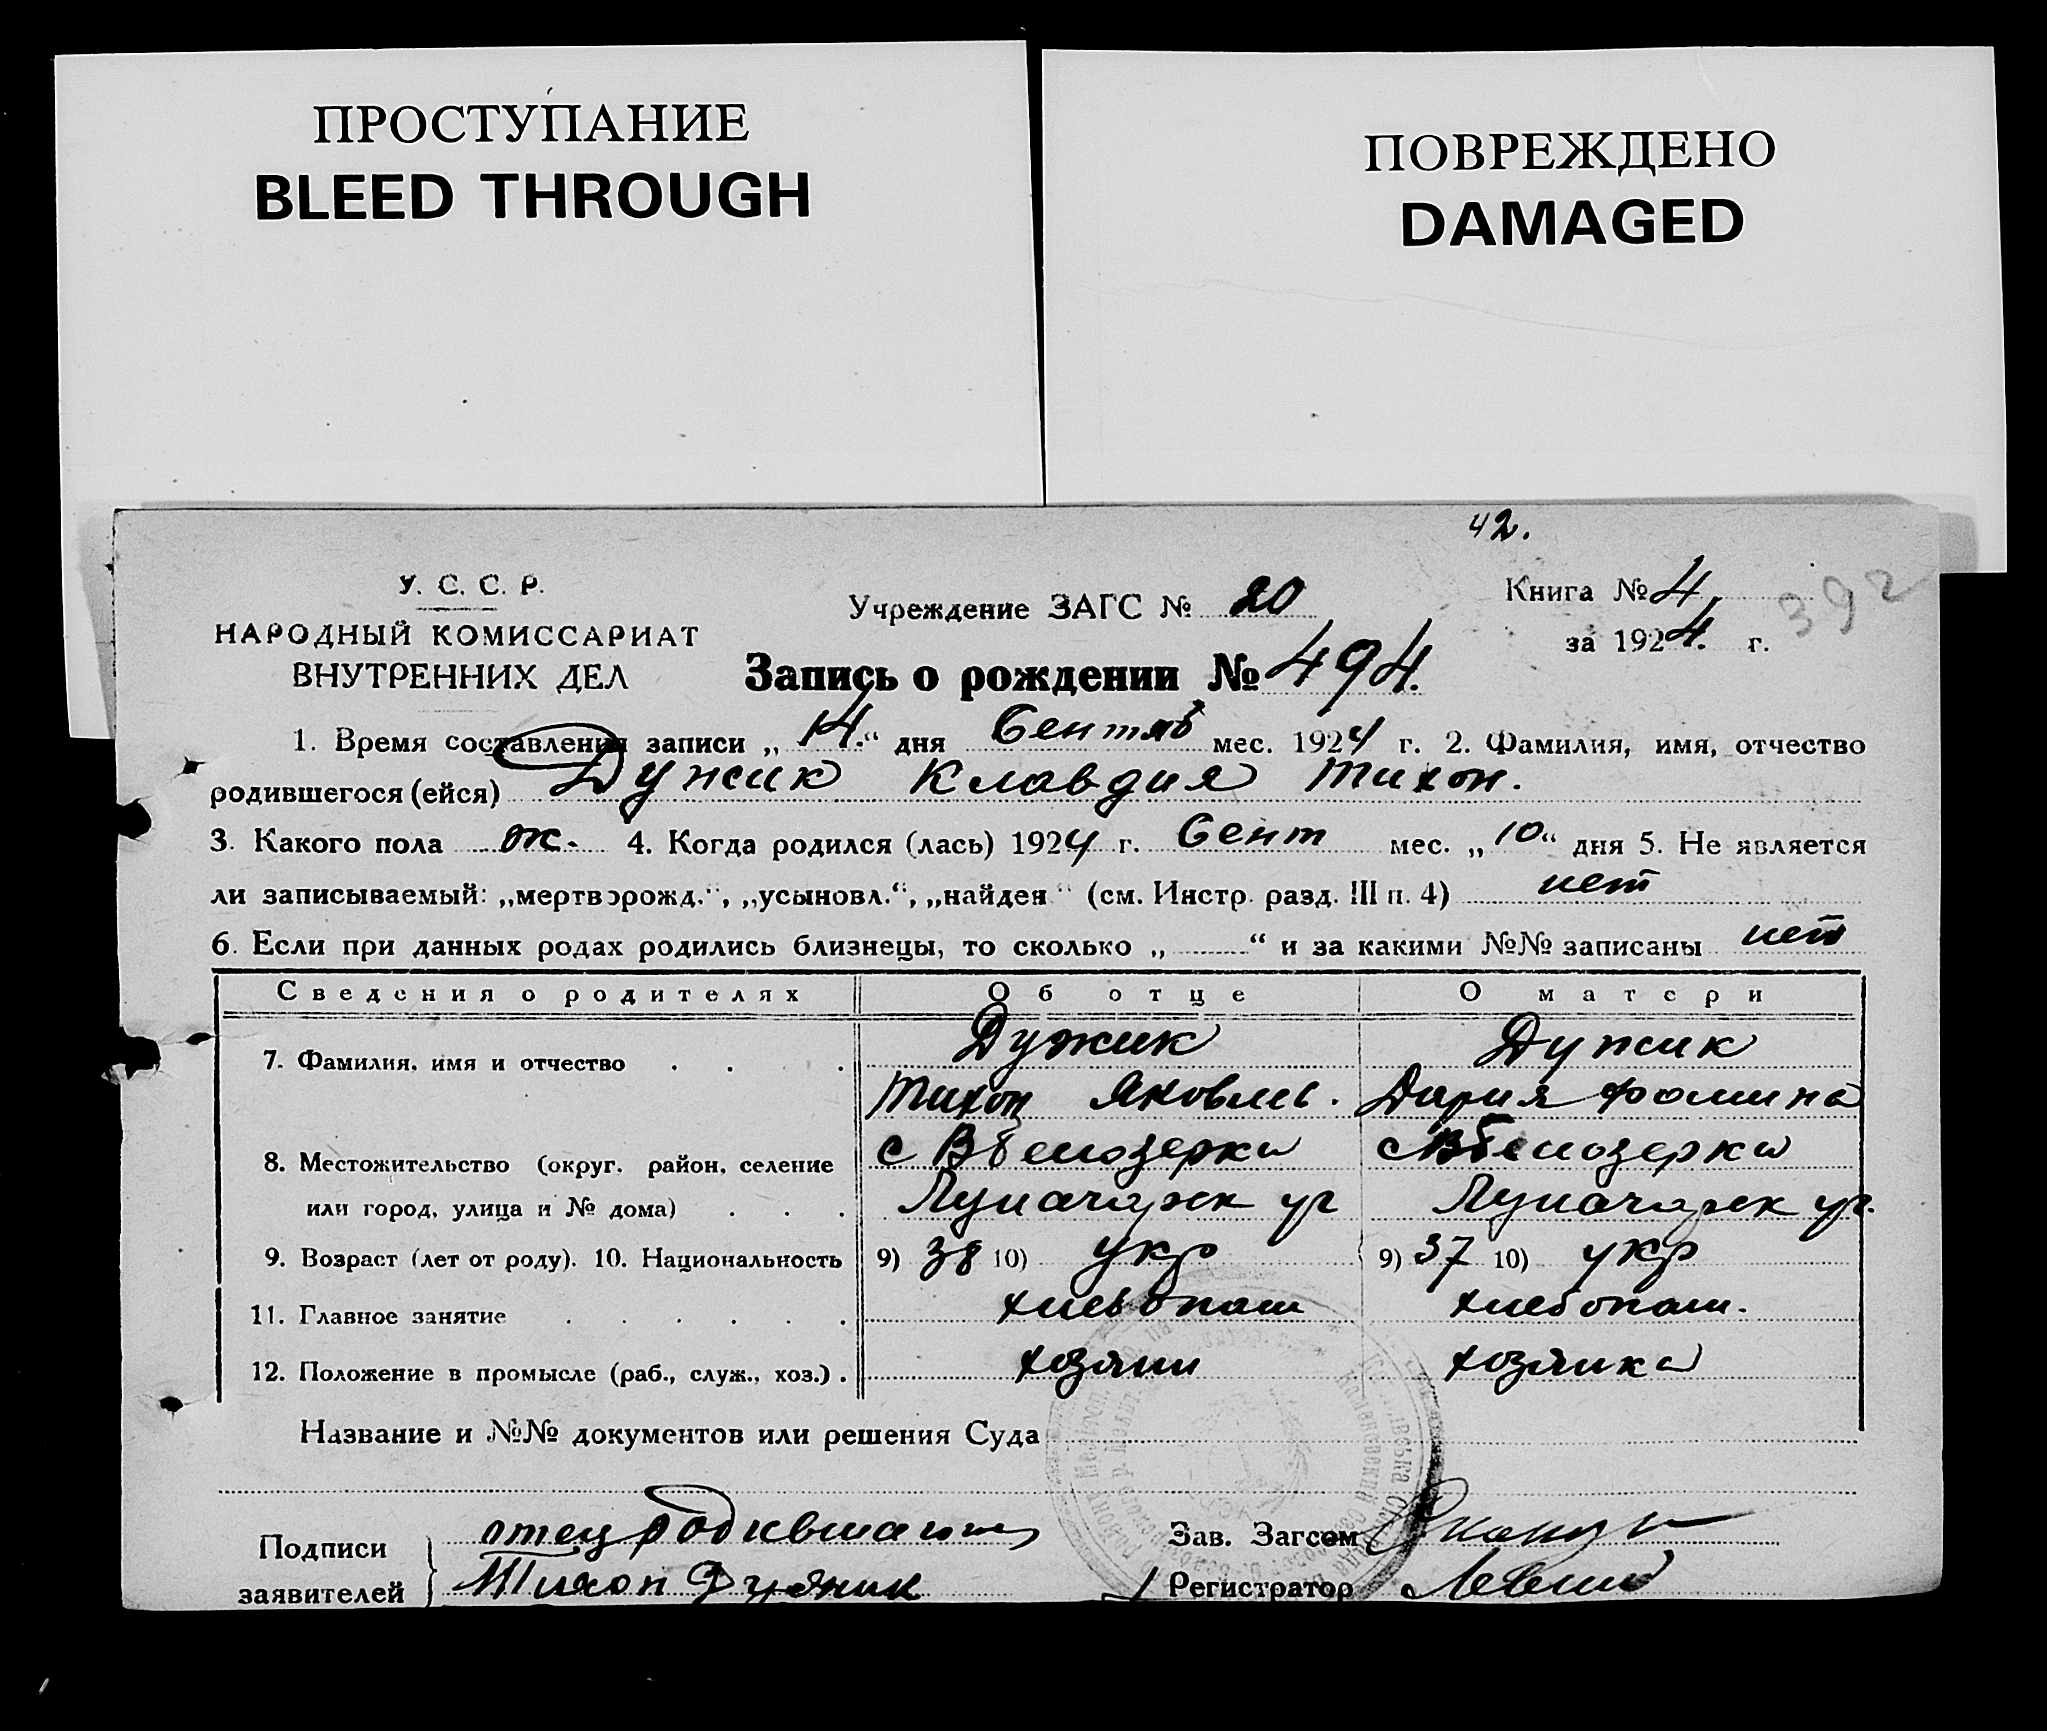 ПРОСТУПАНИЕ
BLEED THROUGH
ПОВРЕЖДЕНО
DAMAGED
42.
У. С. С. Р.
НАРОДНЫЙ КОМИССАРИАТ
ВНУТРЕННИХ ДЕЛ
Учреждение ЗАГС № 20
Книга № 4
за 1924. г.
392
Запись о рождении № 494.
1. Время составления записи „ 14. “ дня Сентяб мес. 1924 г. 2. Фамилия, имя, отчество
родившегося (ейся) Дужик Клавдия Тихон.
3. Какого пола ж. 4. Когда родился (лась) 1924 г. Сент мес. „ 10 “ дня 5. Не является
ли записываемый: „мертворожд.“, „усыновл.“, „найден “ (см. Инстр. разд. III п. 4) нет
6. Если при данных родах родились близнецы, то сколько „ “ и за какими №№ записаны нет
Сведения о родителях Об отце О матери
7. Фамилия, имя и отчество Дужик Дужик
Тихон Яковлев. Дария Фомина
8. Местожительство (округ. район, селение с В белозерка с В белозерка
или город, улица и № дома) Луначарск ул Луначарск ул.
9. Возраст (лет от роду). 10. Национальность 9) 38 10) укр 9) 37 10) укр
11. Главное занятие хлебопаш хлебопаш.
12. Положение в промысле (раб., служ., хоз.) хозяин хозяйка
Название и №№ документов или решения Суда
Подписи
заявителей
отец родившагося
Тихон Дужик
Зав. Загсом
Регистратор